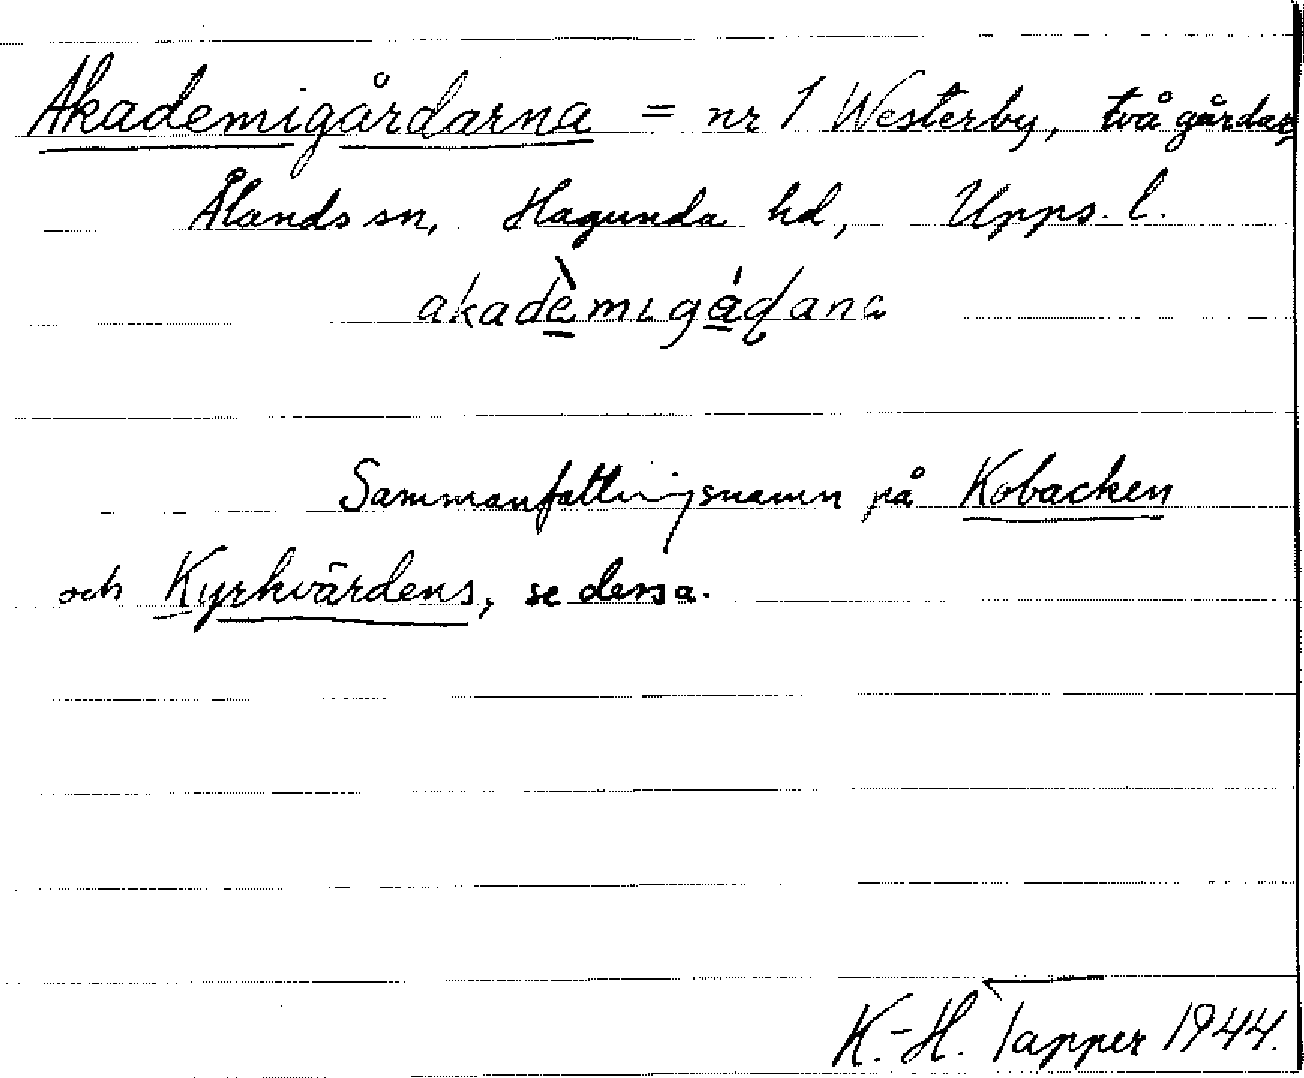 Akademigårdarna = nr 1 Westerby, två gårdar
Ålands sn, Hagunda hd, Upps. l.
akadèmigádana
Sammanfattningsnamn på Kobacken
och Kyrkvärdens, se dessa.
K.-H. Tapper 1944.